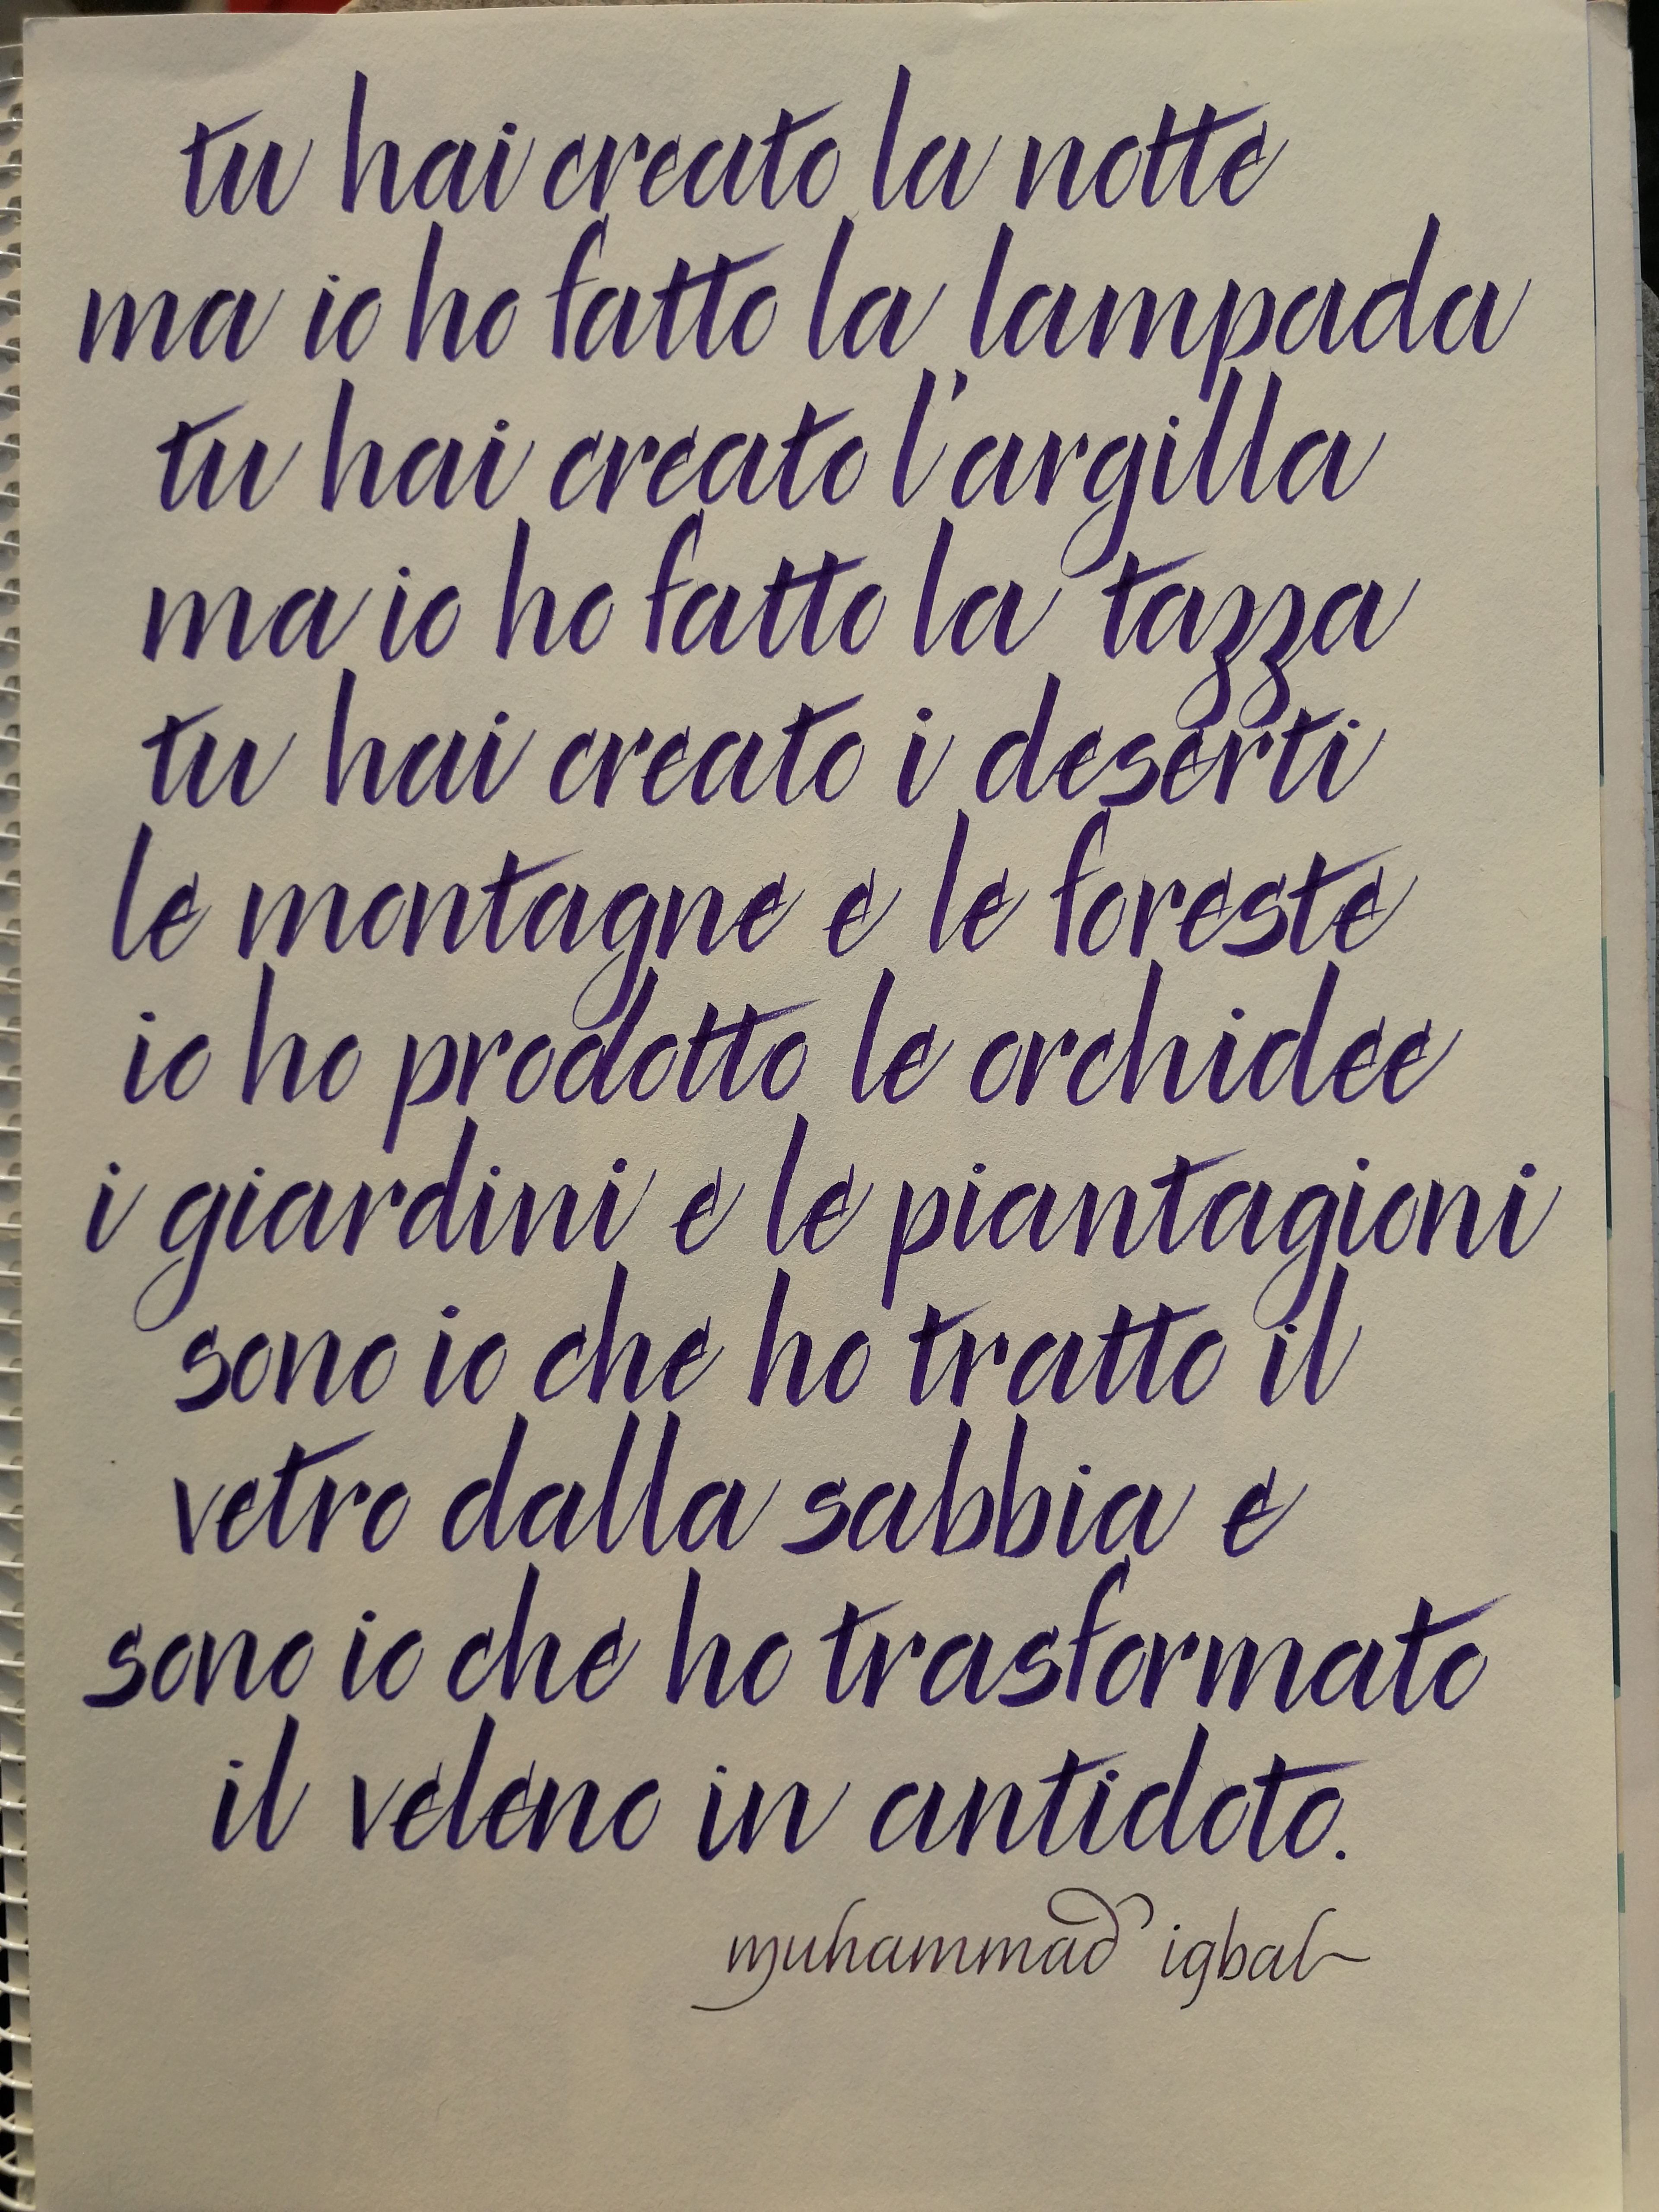 tu hai creato la notte
ma io ho fatto la lampada
tu hai creato l'argilla
ma io ho fatto la tazza
tu hai creato i deserti
le montagne e le foreste
io ho prodotto le orchidee
i giardini e le piantagioni
sono io che ho tratto il
vetro dalla sabbia e
sono io che ho trasformato
il veleno in antidoto.
muhammad igbal